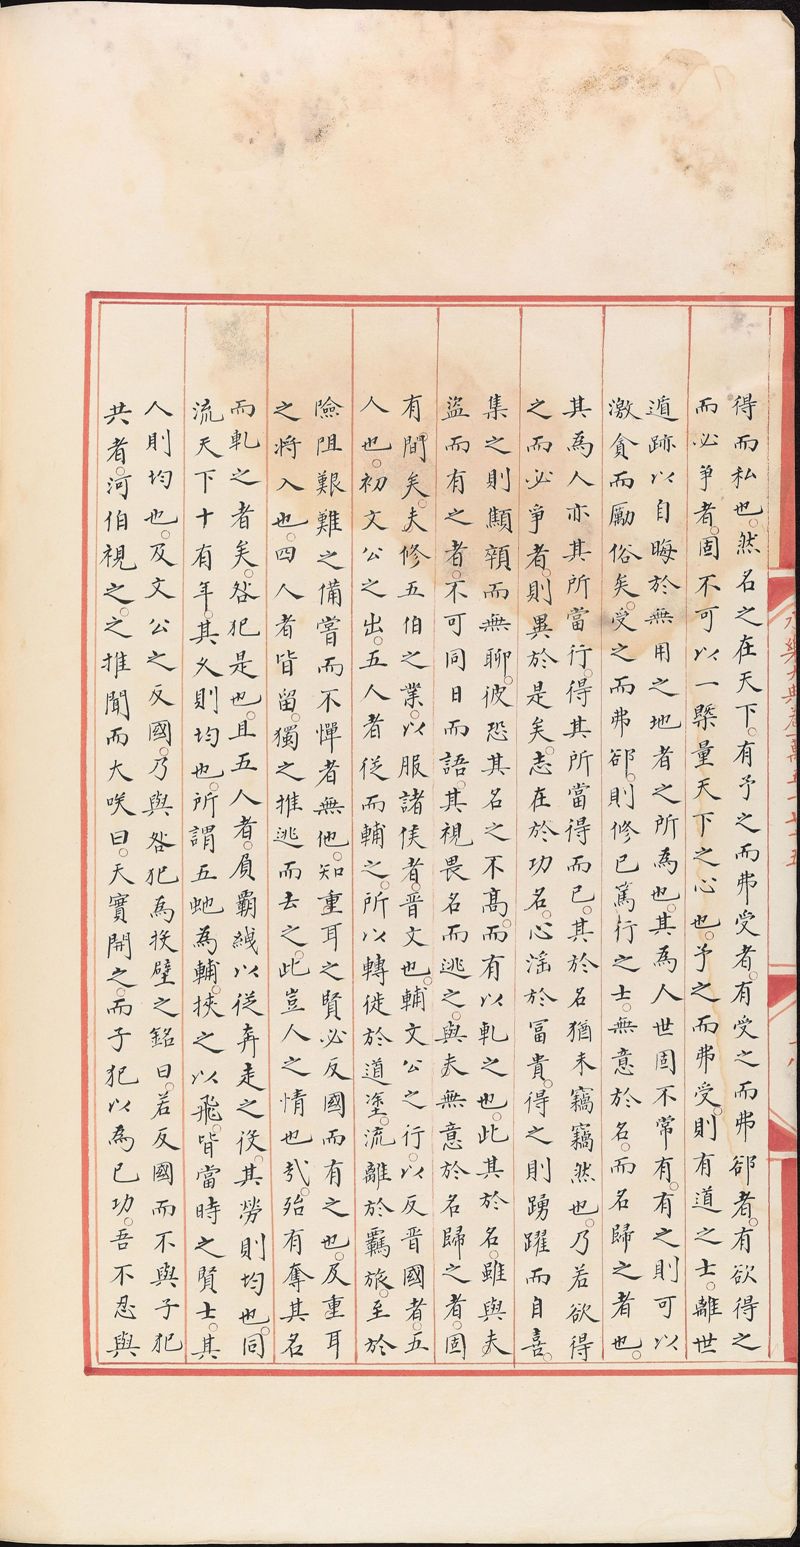 得而私也。然名之在天下。有予之而弗受者。有受之而弗郤者。有欲得之
而必爭者。固不可以一槩量天下之心也。予之而弗受。則有道之士。離世
遁跡以自晦於無用之地者之所為也。其為人世固不常有。有之則可以
激貪而厲俗矣。受之而弗郤。則修已篤行之士。無意於名。而名歸之者也。
其為人亦其所當行。得其所當得而已。其於名猶未竊竊然也。乃若欲得
之而必爭者。則異於是矣。志在於功名。心滛於冨貴。得之則踴躍而自喜。
集之則顦顇而無聊。彼恐其名之不髙。而有以軋之也。此其於名。雖與夫
盜而有之者。不可同日而語。其視畏名而逃之。與夫無意於名歸之者。固
有間矣。夫修五伯之業。以服諸侯者。晋文也。輔文公之行。以反晋國者。五
人也。初文公之出。五人者從而輔之。所以轉徙於道塗。流離於羈旅。至於
險阻艱難之備嘗而不憚者無他。知重耳之賢必反國而有之也。及重耳
之將入也。四人者皆留。獨之推逃而去之。此豈人之情也㢤。殆有奪其名
而軋之者矣。咎犯是也。且五人者。負霸緤以從奔走之役。其勞則均也。同
流天下十有年。其乆則均也。所謂五虵為輔。挾之以飛。皆當時之賢士。其
人則均也。及文公之反國。乃與咎犯為投璧之銘曰。若反國而不與子犯
共者。河伯視之。之推聞而大咲曰。天實開之。而子犯以為已功。吾不忍與